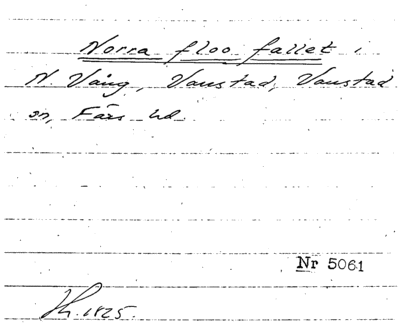 Norra floo fallet i
N. Vång, Vanstad, Vanstad
sn, Färs hd.
Nr 5061
Th. 1825.